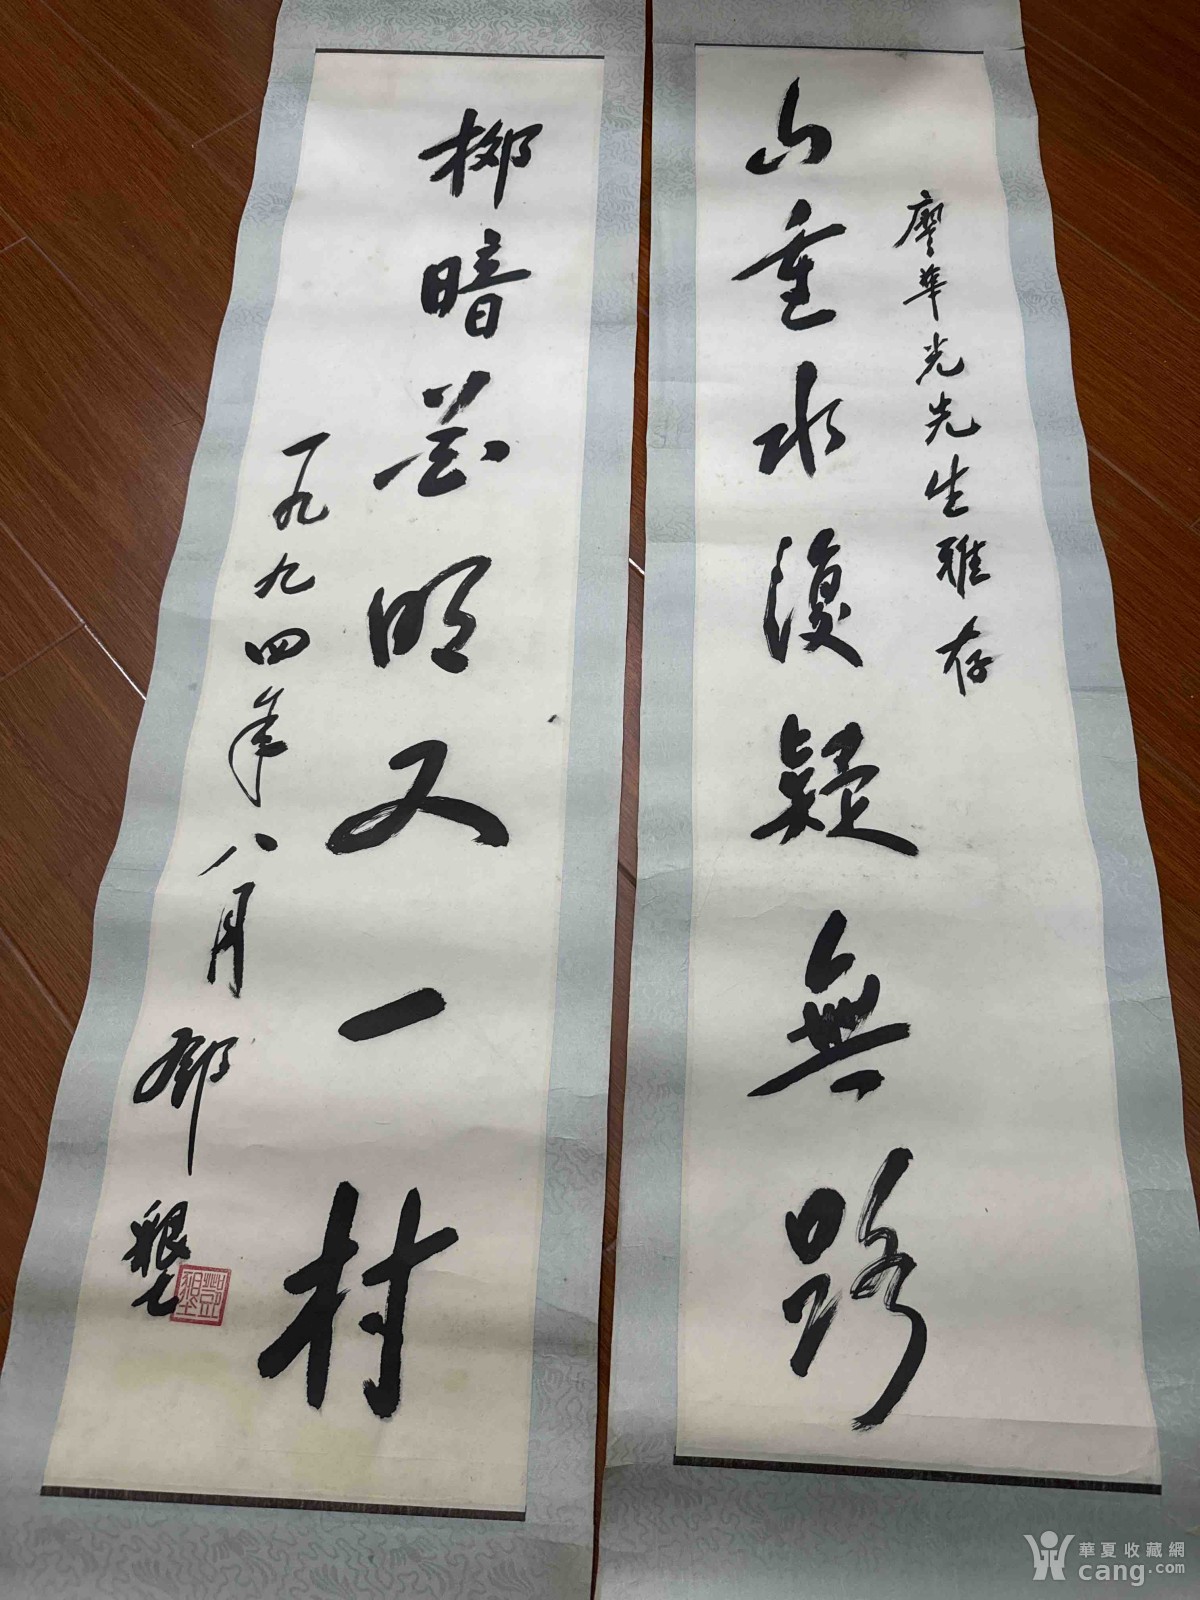 廖華光先生雅存
山重水復疑無路
柳暗花明又一村
一九九四年八月 邓墾
鄧墾
華夏收藏網
cang.com